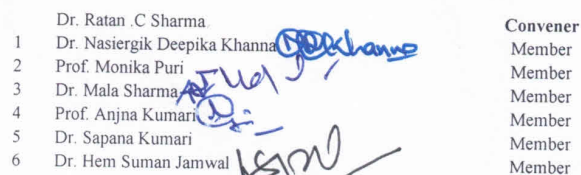 Dr. Ratan .C Sharma Convener
1 Dr. Nasiergik Deepika Khanna Khanna Member
2 Prof. Monika Puri Member
3 Dr. Mala Sharma Member
4 Prof. Anjna Kumari Member
5 Dr. Sapana Kumari Member
6 Dr. Hem Suman Jamwal Member